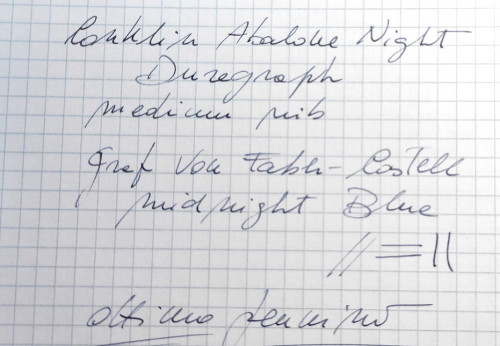 Conklin Abalone Night
Duragraph
medium nib
Graf Von Faber-Castell
midnight Blue
// = ||
ottimo pennino